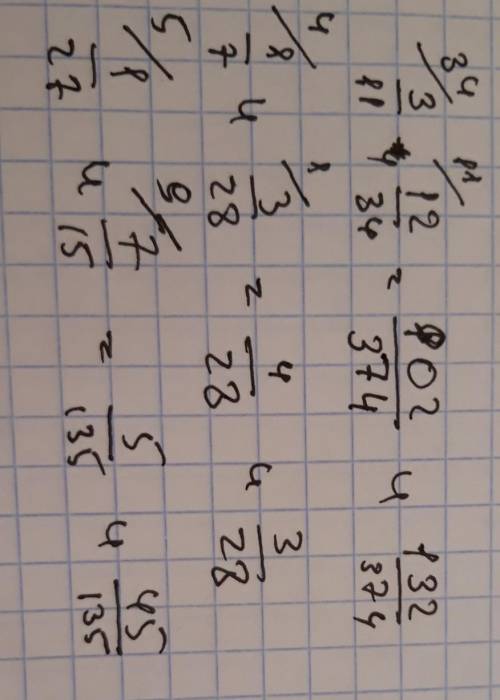 34/ 3/11 и 11/ 12/34 = 102/374 и 132/374
4/ 1/7 и 1/ 3/28 = 4/28 и 3/28
5/ 1/27 и 9/ 7/15 = 5/135 и 45/135